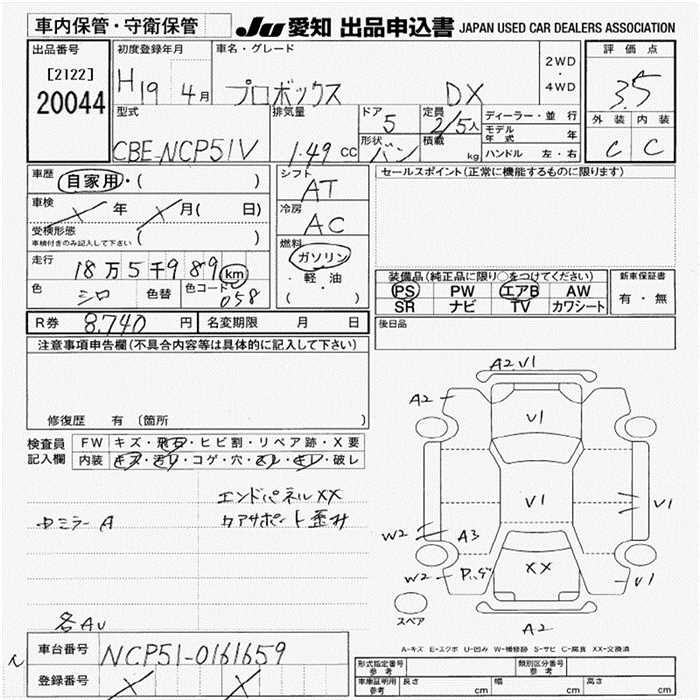 車内保管・守衛保管
JU 愛知 出品申込書 JAPAN USED CAR DEALERS ASSOCIATION
出品番号
[2122]
20044
初度登録年月
H19 4月
車名・グレード
プロボックス DX
2WD
・
4WD
評価点
3.5
外装 内装
C C
型式
CBE-NCP51V
排気量
1.49 CC
ドア
5
形状
バン
定員
2/5人
積載
kg
ディーラー・並行
モデル年式 年
ハンドル 左・右
車歴
自家用・( )
車検
X 年 X 月( 日)
受検形態
車検付きのみ記入して下さい ( )
走行
18万5千989 km
色
シロ
色替
色コード
058
シフト
AT
冷房
AC
燃料
ガソリン
・軽・油
( )
セールスポイント(正常に機能するものに限ります)
装備品(純正品に限り○をつけてください)
PS PW エアB AW
SR ナビ TV カワシート
新車保証書
有・無
R券 8.740 円
名変期限 月 日
後日品
注意事項申告欄(不具合内容等は具体的に記入して下さい)
修復歴 有 〔箇所 〕
検査員記入欄
FW キズ・飛石・ヒビ割・リペア跡・X要
内装 キズ・汚れ・コゲ・穴・スレ・キレ・破レ
エンドパネルXX
中ミラーA
コアサポート歪み
各AU
A2 V1
A2
V1
V1
V1
W2
A3
W2
XX
V1
A2
スペア
A-キズ E-エクボ U-凹み W-補修跡 S-サビ C-腐食 XX-交換済
車台番号
NCP51-0161659
登録番号
X X
形式指定番号
参考
類別区分番号
参考
車庫証明用
参考
長さ cm
幅 cm
高さ cm